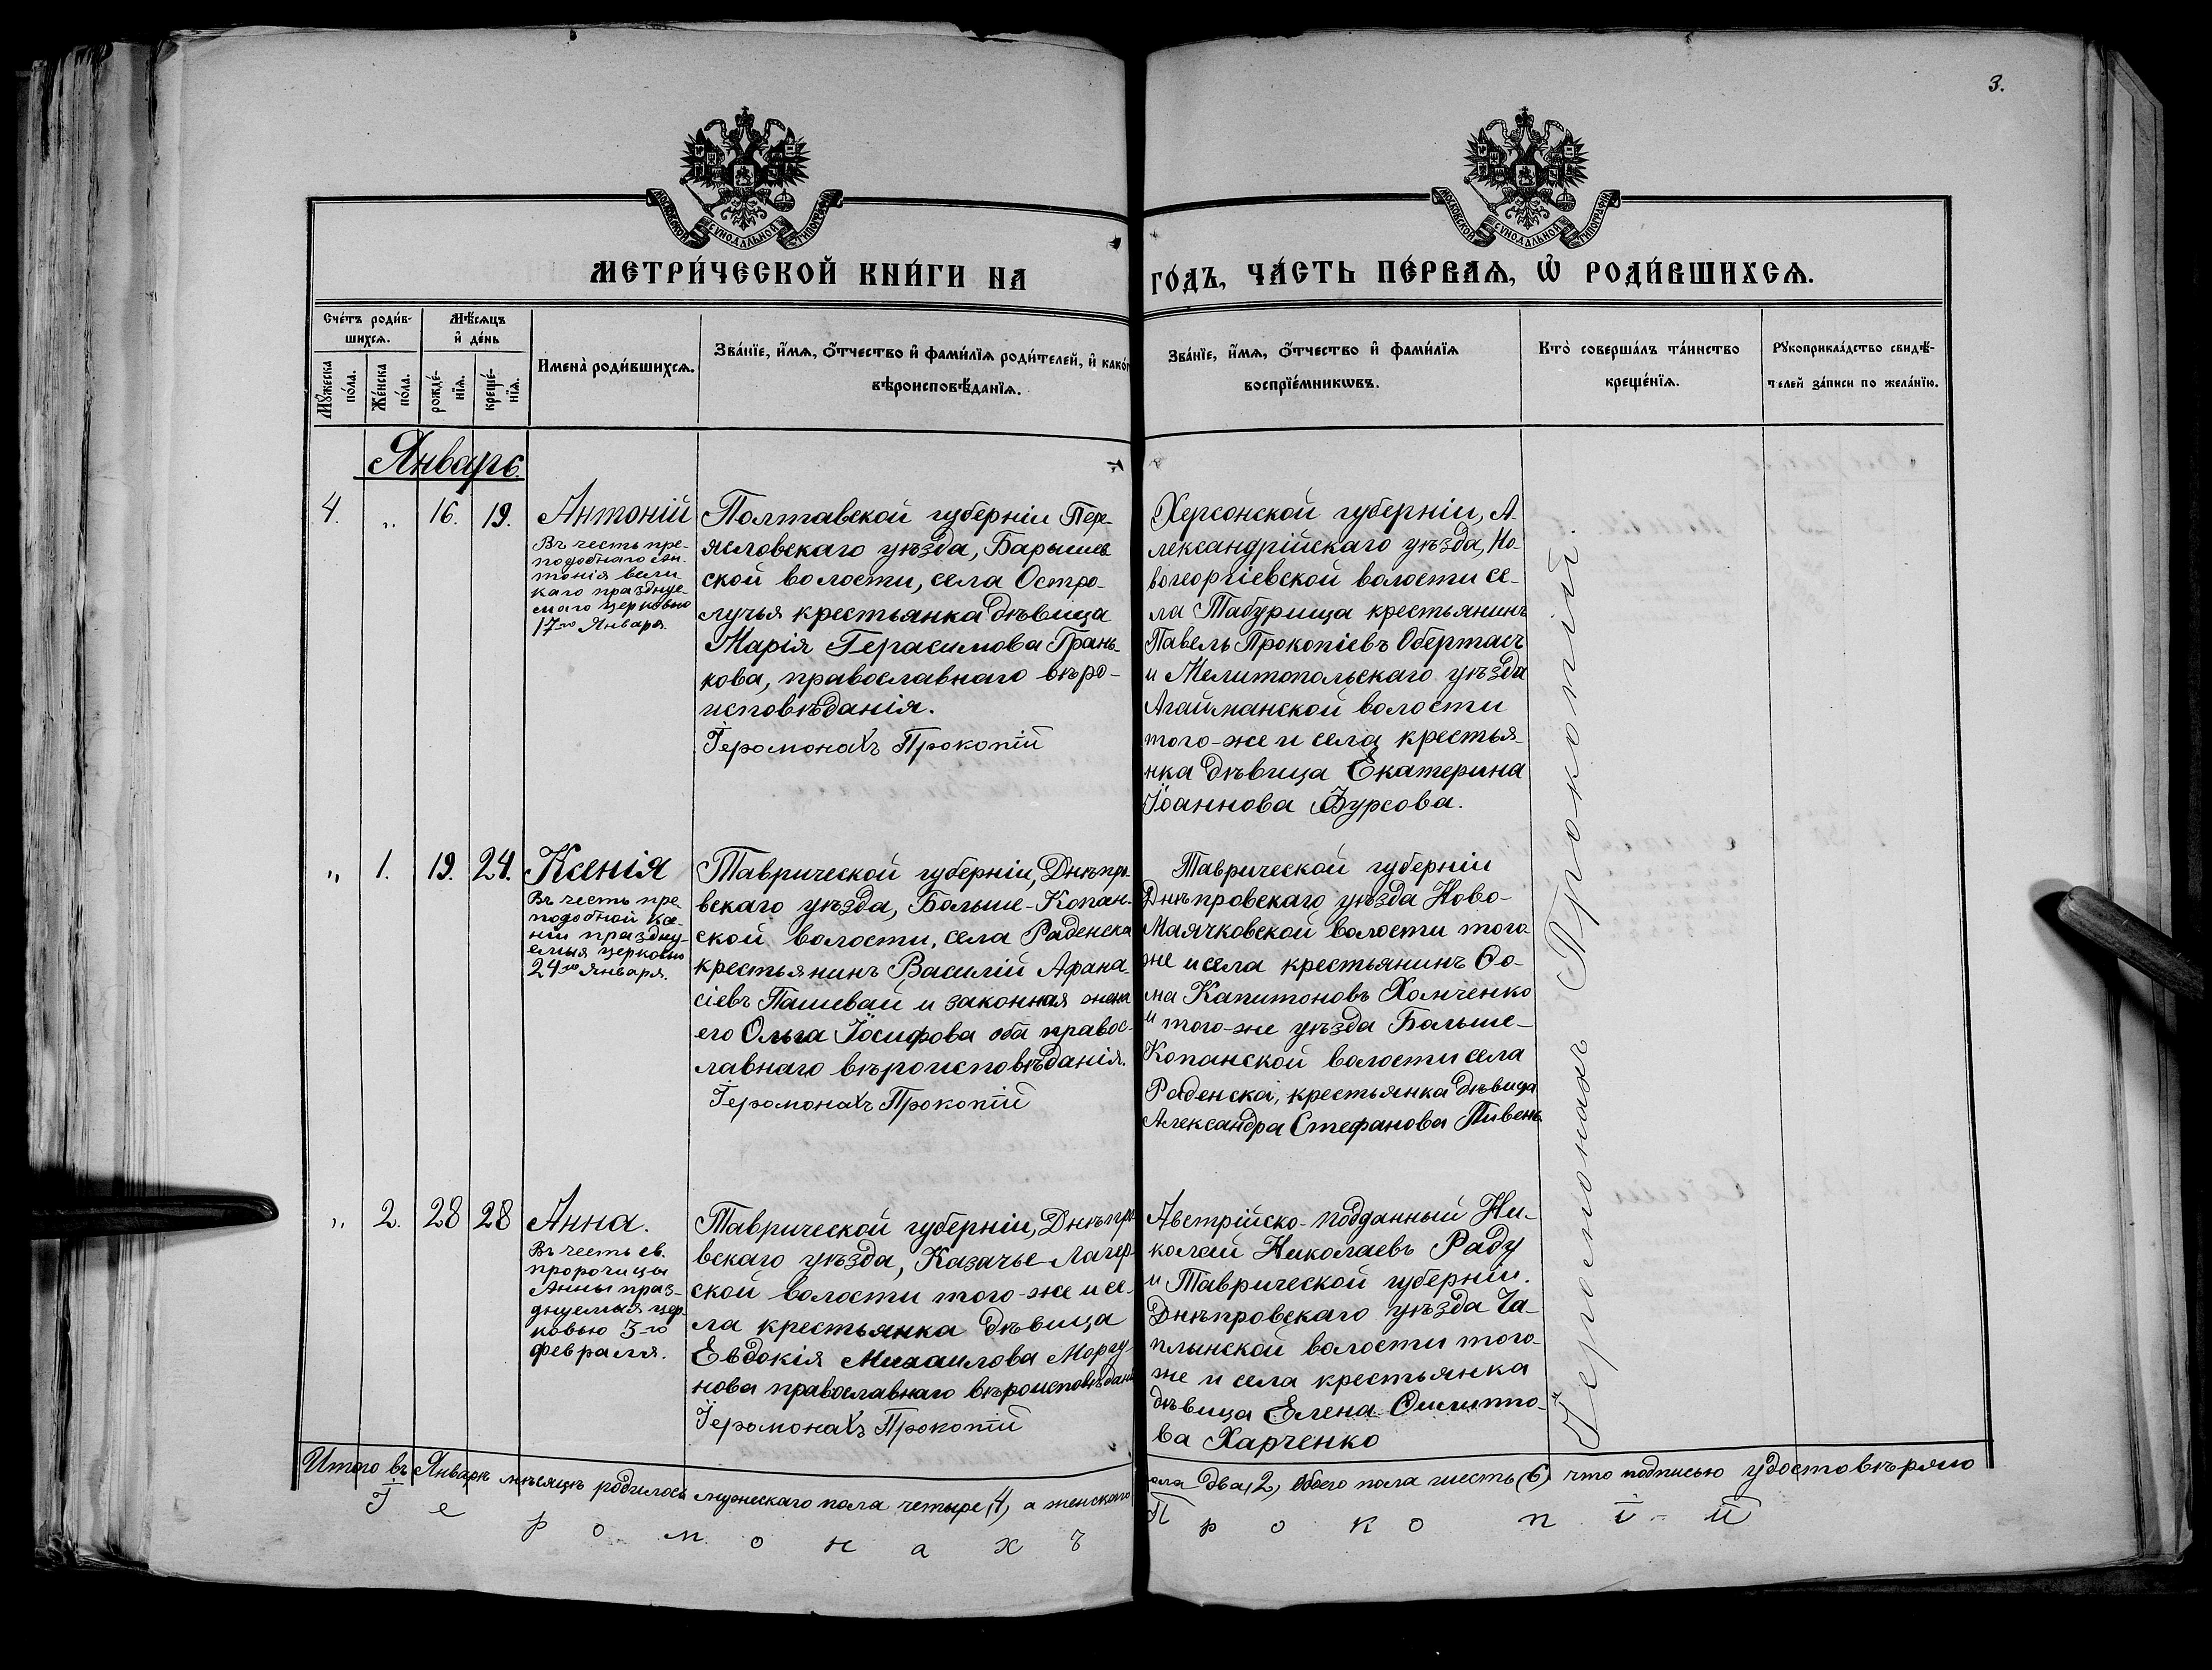 3.
МОСКОВСКОЙ СУНОДАЛЬНОЙ ТИПОГРАФІИ
МОСКОВСКОЙ СУНОДАЛЬНОЙ ТИПОГРАФІИ
МЕТРИ́ЧЕСКОЙ КНИ́ГИ НА
ГО́ДЪ, ЧА́СТЬ ПЕ́РВАѦ, Ѡ҆ РОДИ́ВШИХСѦ.
Сче́тъ роди́в-
шихсѧ.
Мѣ́сѧцъ
и҆ де́нь
Мꙋ́жеска
по́ла.
Же́нска
по́ла.
рожде́-
нїѧ.
креще́-
нїѧ.
И҆мена̀ роди́вшихсѧ.
Зва́нїе, и҆́мѧ, ѻ҆́тчество и҆ фами́лїѧ роди́телей, и҆ како́г
вѣроисповѣ́данїѧ.
Зва́нїе, и҆́мѧ, ѻ҆́тчество и҆ фами́лїѧ
воспрїе́мникѡвъ.
Кто̀ соверша́лъ та́инство
креще́нїѧ.
Рꙋкоприкла́дство свидѣ́-
телей за́писи по жела́нїю.
Январь.
4. „ 16. 19. Антоній
Въ честь пре-
подобнаго Ан-
тонія вели
каго праздџуе-
маго церковью
17го Января.
Полтавской губерніи Пере-
ясловскаго уѣзда, Барышев
ской волости, села Остро-
лучья крестьянка дѣвица
Марія Герасимова Грань-
кова, православнаго вѣро-
исповѣданія.
Іеромонахъ Прокопій
Херсонской губерніи, А-
лександрійскаго уѣзда, Но-
вогеоргіевской волости се-
ла Табурища крестьянинъ
Павелъ Прокопіевъ Обертасъ
и Мелитопольскаго уѣзда
Агайманской волости
того-же и села крестья-
нка дѣвица Екатерина
Іоаннова Фурсова.
„ 1. 19. 24. Ксенія
Въ честь пре
подобной Ксе-
ніи праздну-
емыя церковью
24го января.
Таврической губерніи, Днѣпро-
вскаго уѣзда, Больше-Копан-
ской волости, села Раденска
крестьянинъ Василій Афана-
сіевъ Пашевай и законная жена
его Ольга Іосифова оба правос-
лавнаго вѣроисповѣданія.
Іеромонахъ Прокопій
Таврической губерніи
Днѣпровскаго уѣзда Ново-
Маячковской волости того
же и села крестьянинъ Ѳо-
ма Капитоновъ Хомченко
и того-же уѣзда Больше-
Копанской волости села
Раденска, крестьянка дѣвица
Александра Стефанова Пивень
„ 2. 28 28 Анна.
Въ честь св.
пророчицы
Анны праз-
днуемыя цер
ковью 3-го
февраля.
Таврической губерніи, Днѣпро
вскаго уѣзда, Казачье-Лагер-
ской волости того-же и се-
ла крестьянка дѣвица
Евдокія Михаилова Моргу-
нова православнаго вѣроисповѣдані
Іеромонахъ Прокопій
Австрійско-подданный Ни-
колай Николаевъ Раду
и Таврической губерніи.
Днѣпровскаго уѣзда Ча-
плынской волости того-
же и села крестьянка
дѣвица Елена
ва Харченко
Іеромонахъ Прокопій.
Итого въ Январѣ мѣсяцѣ родилось мужескаго пола четыре (4) а женскаго
ола два, 2, обоего пола шесть (6) что подписью удостовѣряю
Іеромонахъ
Прокопій